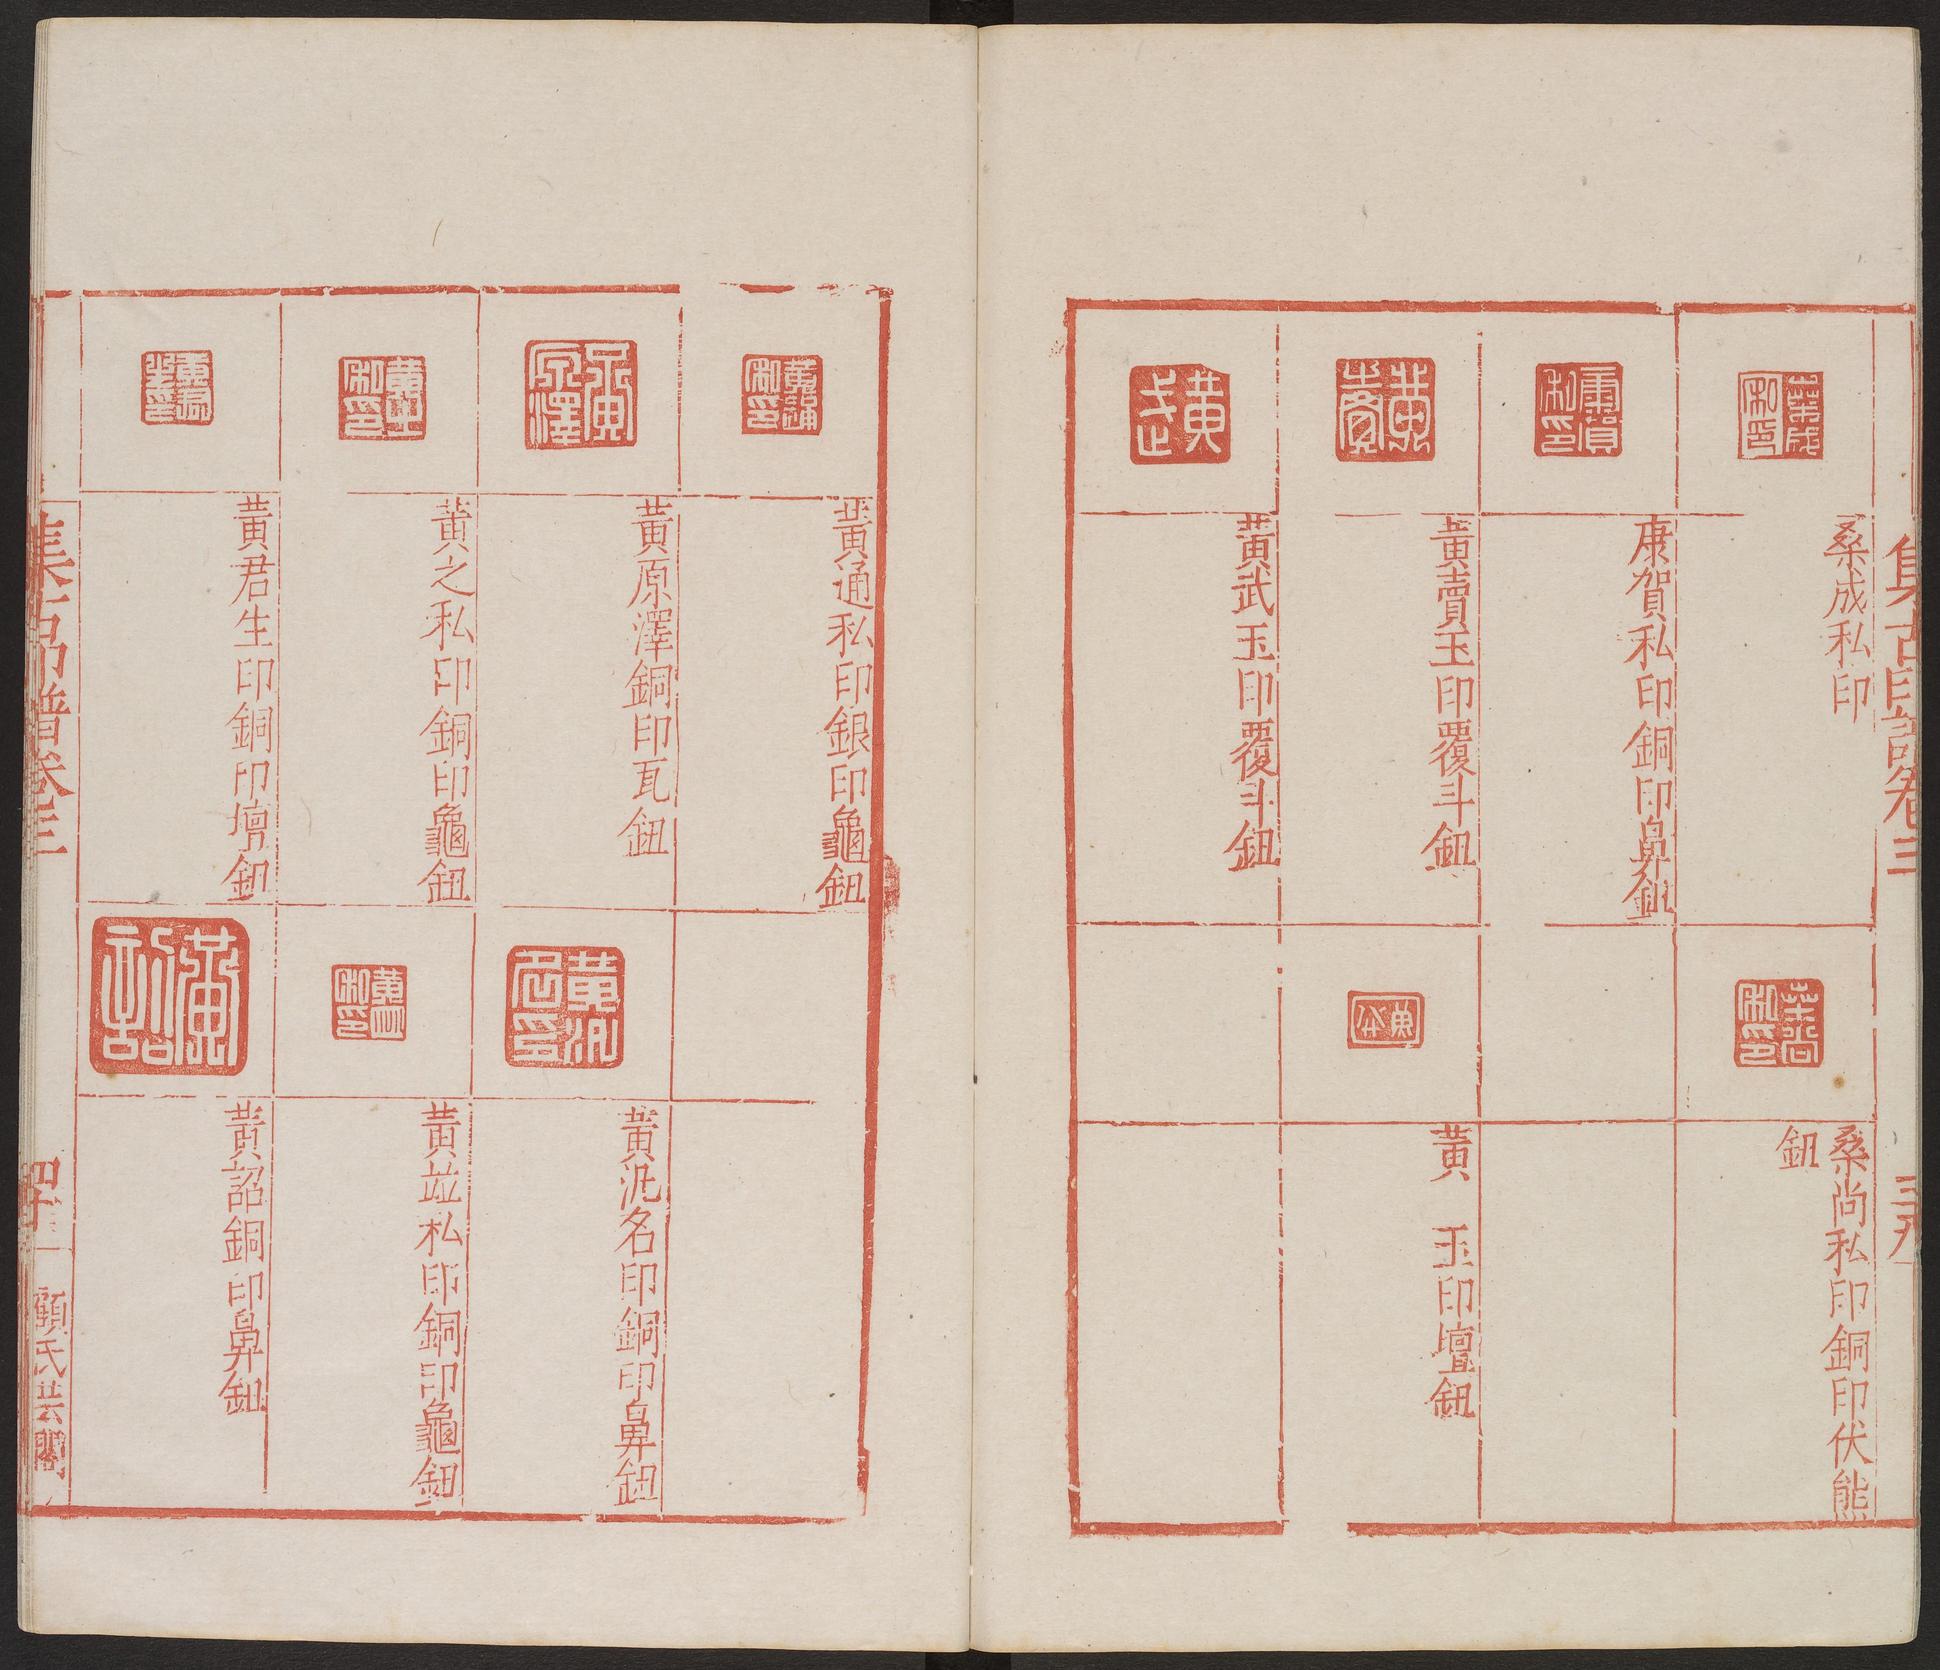 集古印譜卷三
三九
桑成私印
桑尚私印銅印伏熊
鈕
康賀私印銅印鼻鈕
黃賣玉印覆斗鈕
黃　玉印壇鈕
黃武玉印覆斗鈕
黃通私印銀印龜鈕
黃原澤銅印瓦鈕
黃汎名印銅印鼻鈕
黃之私印銅印龜鈕
黃並私印銅印龜鈕
黃君生印銅印壇鈕
黃詔銅印鼻鈕
集古印譜卷三
四十
顧氏芸閣